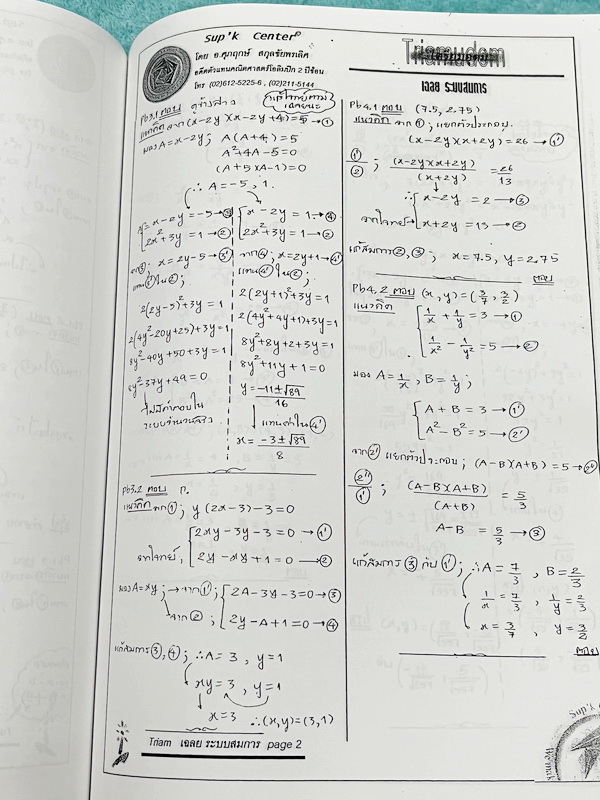 Sup'k Center
โดย อ.ศุภฤกษ์ สกุลชัยพรเลิศ
อดีตตัวแทนคณิตศาสตร์โอลิมปิก 2 ปีซ้อน
โทร (02)612-5225-6 , (02)211-5144
Triamudom
เฉลย ระบบสมการ
Pb3.1 ตอบ
แนวคิด จาก (x-2y)(x-2y+4)=5 → ①
มอง A = x-2y; A(A+4) = 5
A²+4A-5=0
(A+5)(A-1)=0
∴ A = -5, 1.
x-2y = -5 → ③
2x²+3y = 1 → ②
จาก ③; x = 2y-5 → ③'
แทน ③' ใน ②;
2(2y-5)²+3y = 1
2(4y²-20y+25)+3y=1
8y²-40y+50+3y=1
8y²-37y+49=0
ไม่มีคำตอบใน
ระบบจำนวนจริง
x-2y = 1 → ④
2x²+3y=1 → ②
จาก ④; x=2y+1 → ④'
แทน ④' ใน ②;
2(2y+1)²+3y=1
2(4y²+4y+1)+3y=1
8y²+8y+2+3y=1
8y²+11y+1=0
y = -11±√89 / 16
แทนค่าใน ④'
x = -3±√89 / 8
Pb3.2 ตอบ ก.
แนวคิด จาก ①; y(2x-3)-3=0
2xy-3y-3=0 → ①'
จากโจทย์, 2y-xy+1=0 → ②
มอง A=xy; → จาก ①'; 2A-3y-3=0 → ③
จาก ②; 2y-A+1=0 → ④
แก้สมการ ③, ④; ∴ A = 3, y = 1
xy = 3, y = 1
x = 3 ∴ (x,y) = (3,1)
Triam เฉลย ระบบสมการ page 2
Pb4.1 ตอบ (7.5, 2.75)
แนวคิด จาก ①; แยกตัวประกอบ.
(x-2y)(x+2y) = 26 → ①'
①'/②; (x-2y)(x+2y) / (x+2y) = 26/13
∴ x-2y = 2 → ③
จากโจทย์ → x+2y = 13 → ②
แก้สมการ ②, ③; x = 7.5, y = 2.75
ตอบ
Pb4.2 ตอบ (x,y) = (3/7, 3/2)
แนวคิด
1/x + 1/y = 3 → ①
1/x² - 1/y² = 5 → ②
มอง A = 1/x, B = 1/y;
A + B = 3 → ①'
A² - B² = 5 → ②'
จาก ②' แยกตัวประกอบ; (A-B)(A+B) = 5 → ②''
②''/①'; (A-B)(A+B) / (A+B) = 5/3
A-B = 5/3 → ③
แก้สมการ ③ กับ ①'; ∴ A = 7/3, B = 2/3
1/x = 7/3, 1/y = 2/3
x = 3/7, y = 3/2
ตอบ